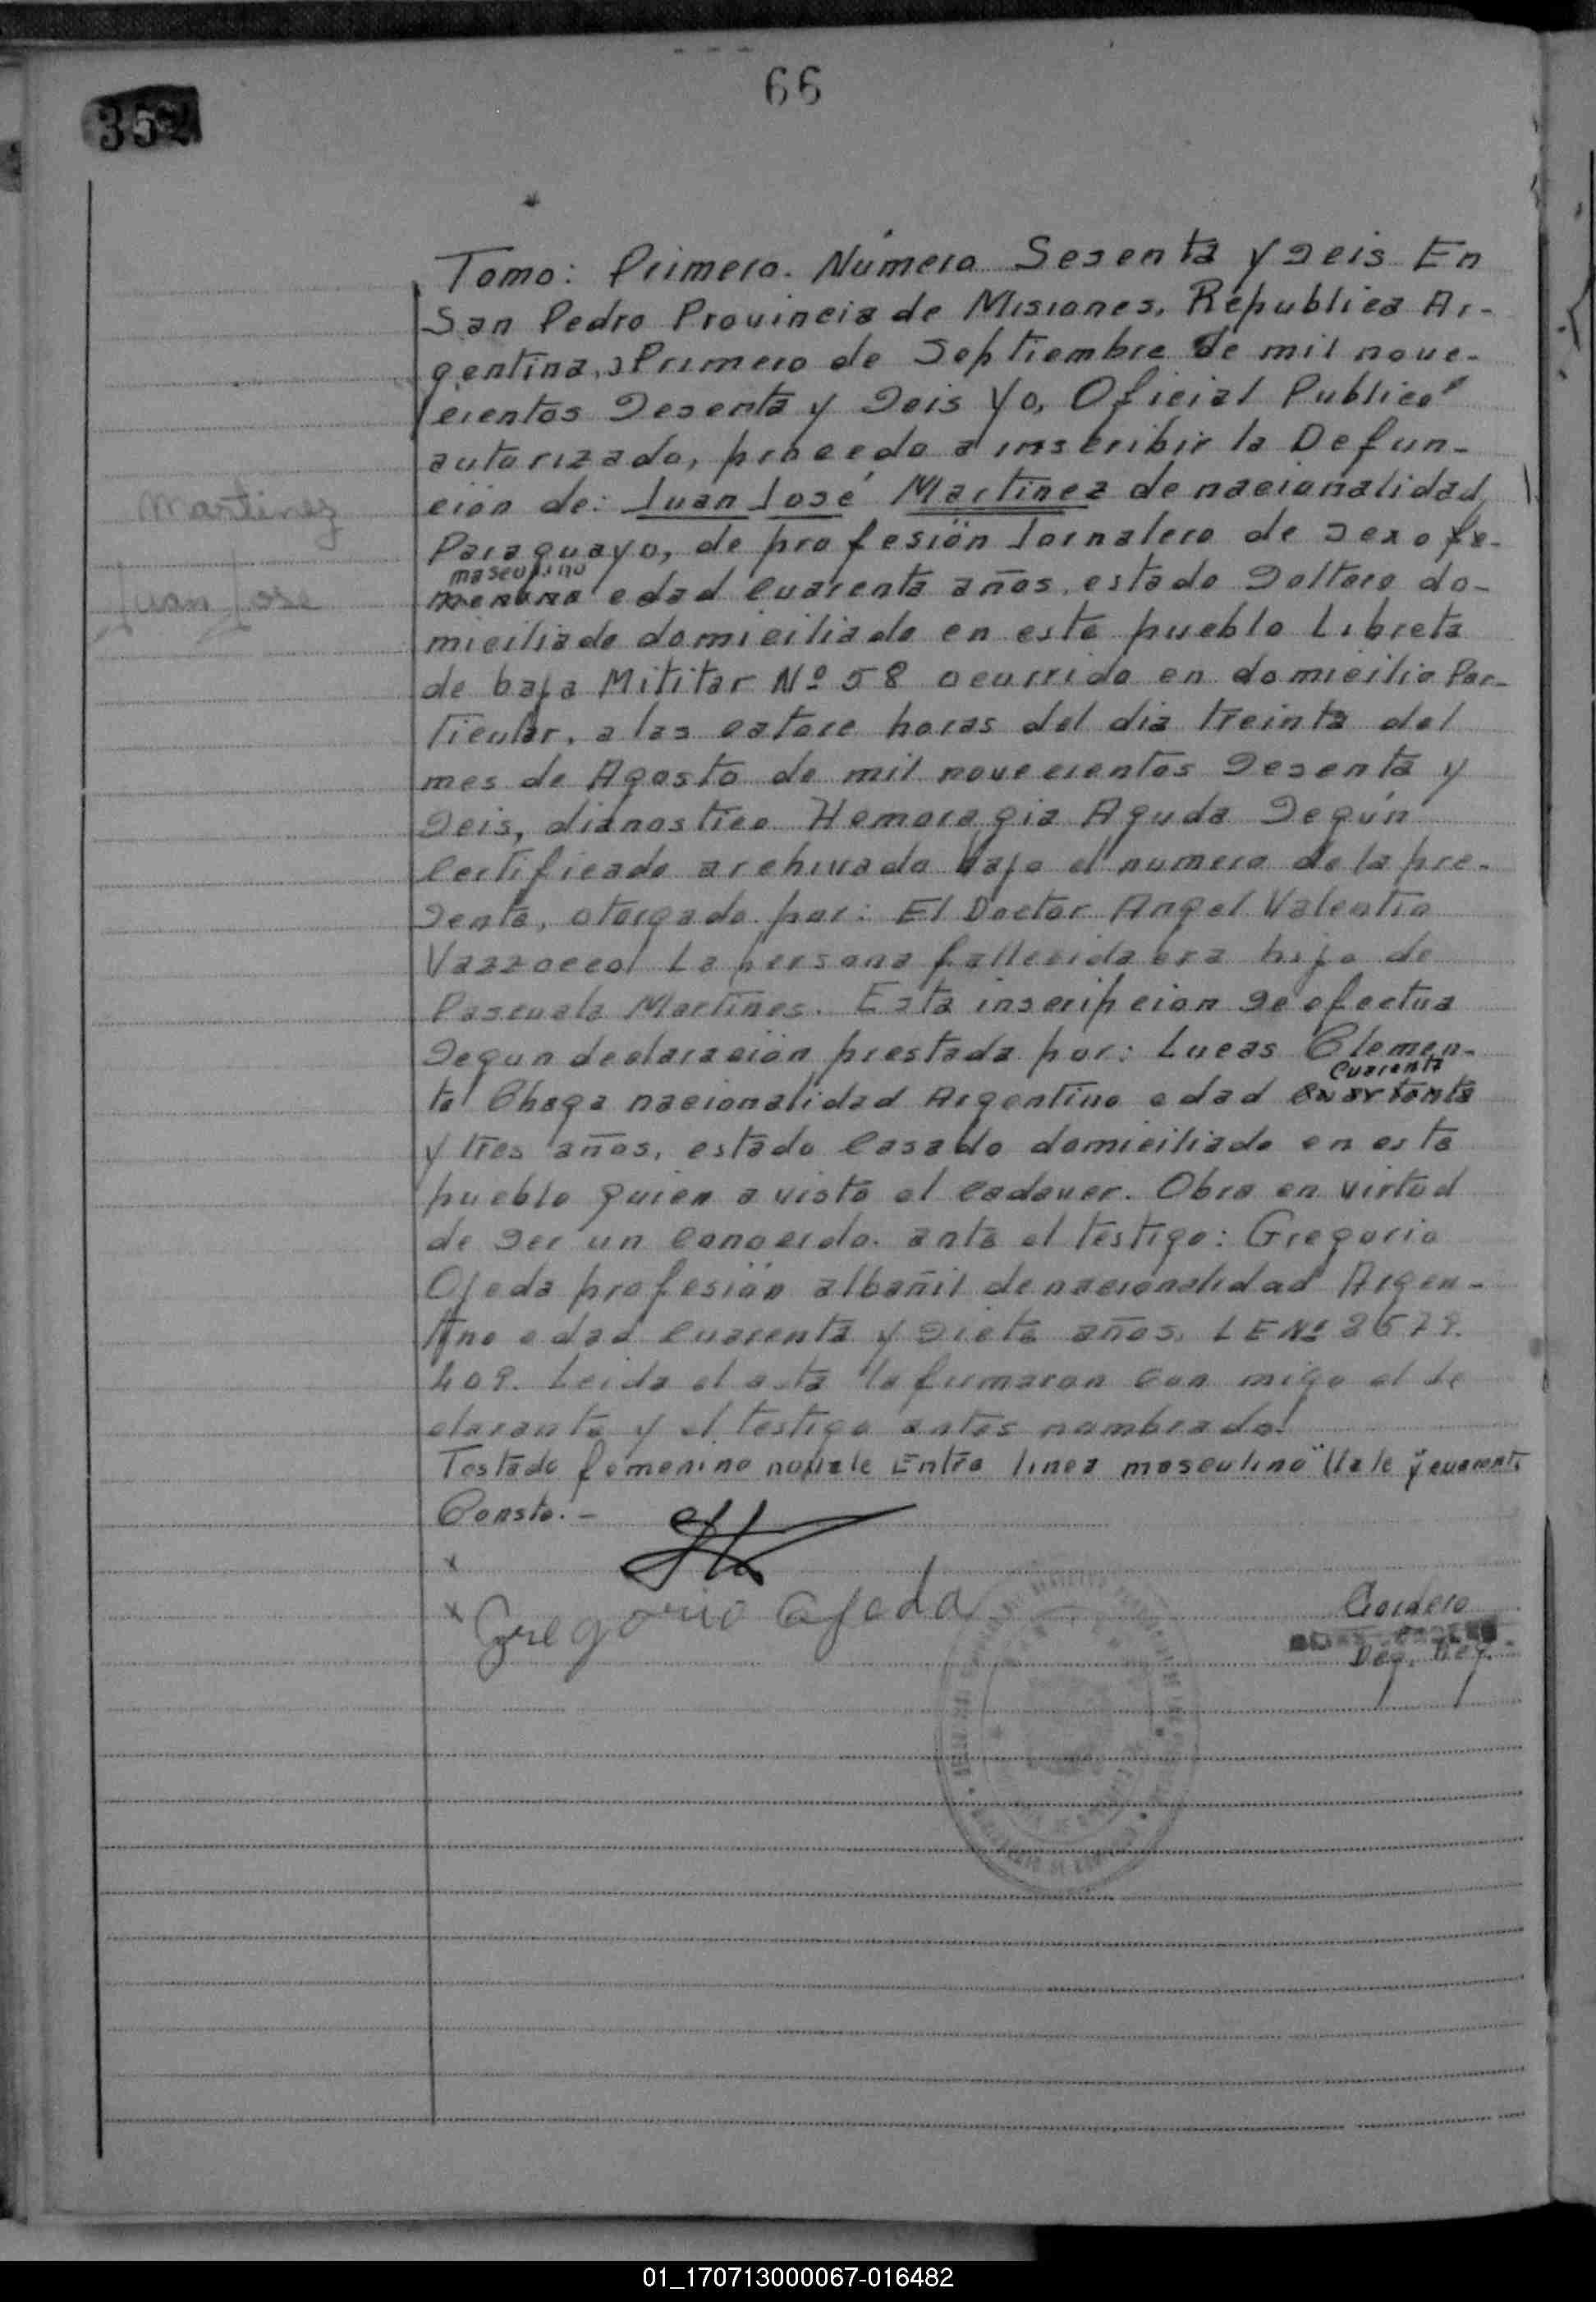 66
352
Tomo: Primero. Número Sesenta y Seis En
San Pedro Provincia de Misiones, Republica Ar-
gentina, a Primero de Septiembre de mil nove-
cientos Sesenta y Seis Yo, Oficial Publico
autorizado, procedo a inscribir la Defun-
ción de: Juan José Martinez de nacionalidad
Martinez
Paraguayo, de profesión Jornalero de sexo fe-
masculino
menino edad Cuarenta años, estado Soltero do-
Juan Jose
miciliado domiciliado en este pueblo Libreta
de baja Mititar Nº 58 ocurrido en domicilio Par-
ticular, a las catorce horas del dia treinta del
mes de Agosto de mil novecientos Sesenta y
Seis, dianostico Hemoragia Aguda Según
Certificado archivado bajo el numero de la pre-
sente, otorgado por: El Doctor Angel Valentin
Vazzocco La persona fallecida era hijo de
Pascuala Martines. Esta inscripcion se efectua
Segun declaración prestada por: Lucas Clemen-
Cuarenta
te Chaga nacionalidad Argentino edad
y tres años, estado Casado domiciliado en este
pueblo quien a visto el Cadaver. Obra en virtud
de Ser un Conocido. ante el testigo: Gregorio
Ojeda profesión albañil de nacionalidad Argen-
tino edad Cuarenta y Siete años, LE Nº 2679.
409. Leida el acta la firmaron con migo el de
clarante y el testigo antes nombrado.
Testado femenino no vale Entre linea masculino Vale y cuarenta
Consto.-
x
x Gregorio Ojeda
Cordero
Deg. Reg.
01_170713000067-016482